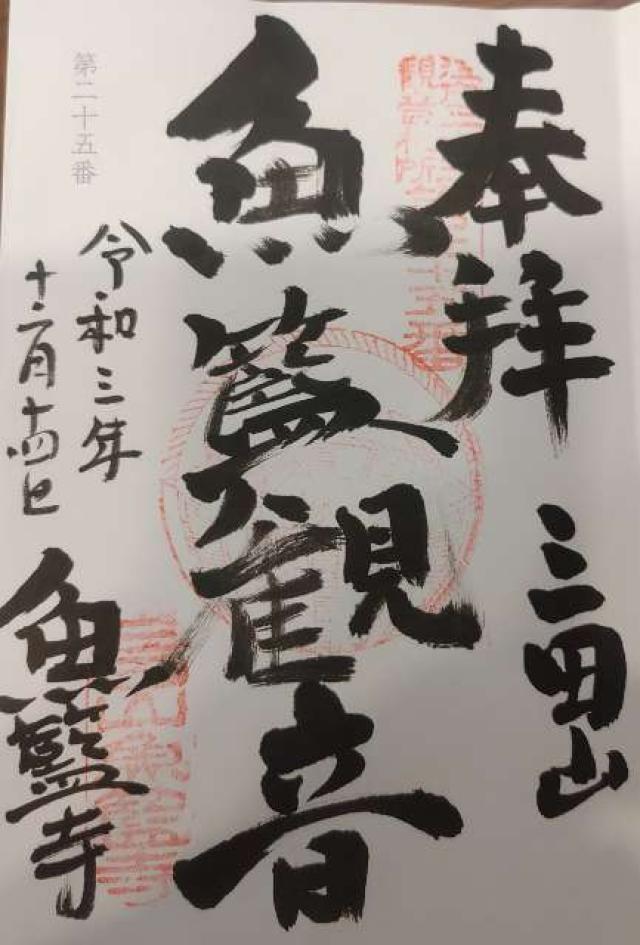 奉拝 三田山
魚籃観音
第二十五番
令和三年
十二月十四日
魚籃寺